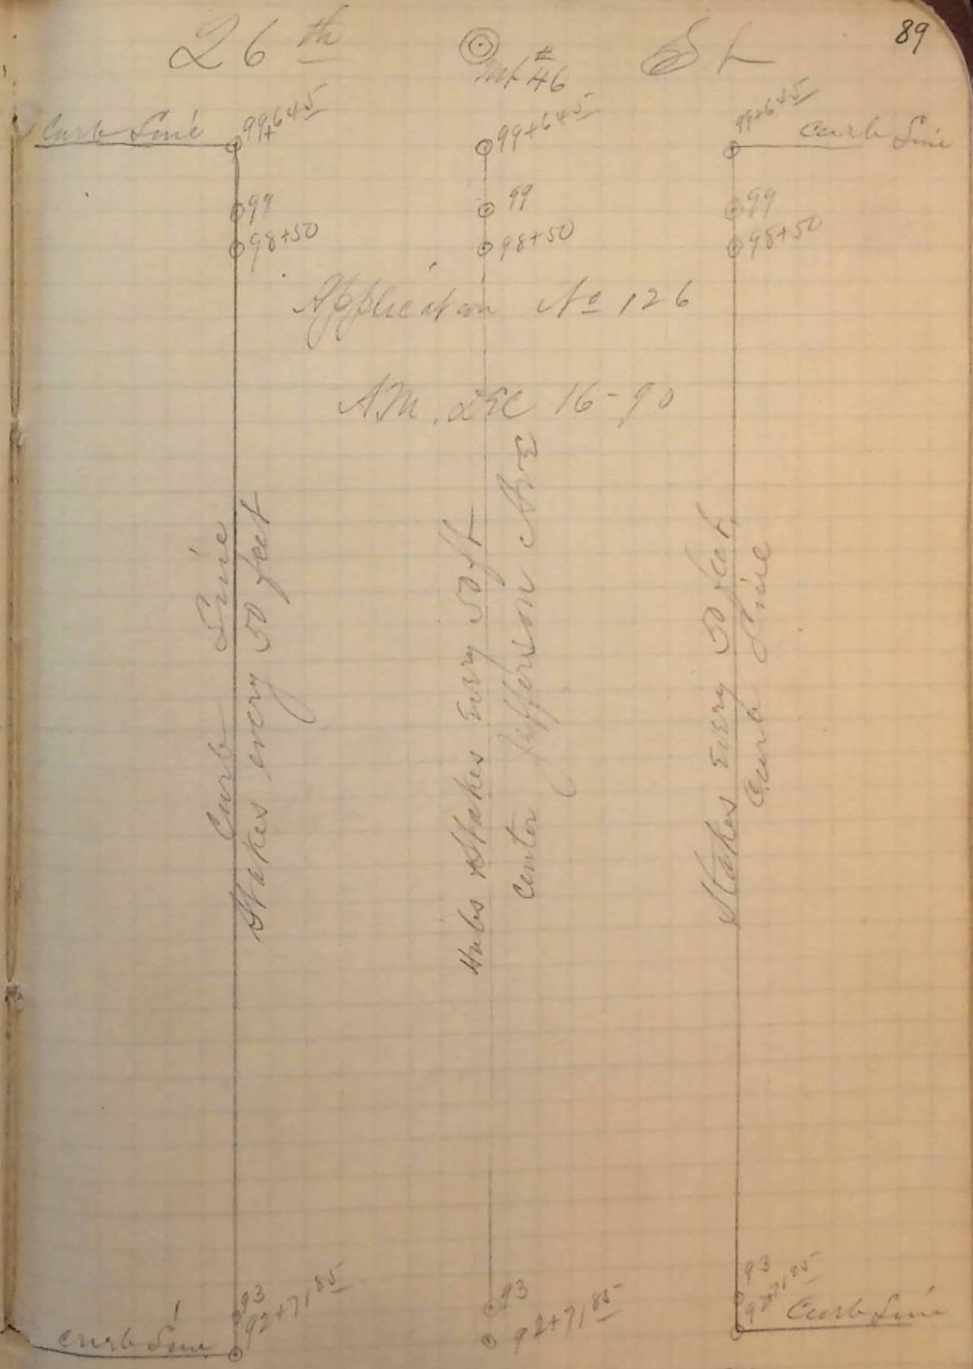 89
26th St
Mt #46
Curb Line 99+64⁵ 99+64⁵ 99+64⁵ Curb Line
99 99 99
98+50 98+50 98+50
Application No 126
A.M. DEC 16-90
Curb Line
Stakes every 50 feet
Hubs & Stakes Every 50 ft
Center Jefferson Ave
Stakes Every 50 feet
Curb Line
93 93 93
Curb Line 92+71⁸⁵ 92+71⁸⁵ 92+71⁸⁵ Curb Line